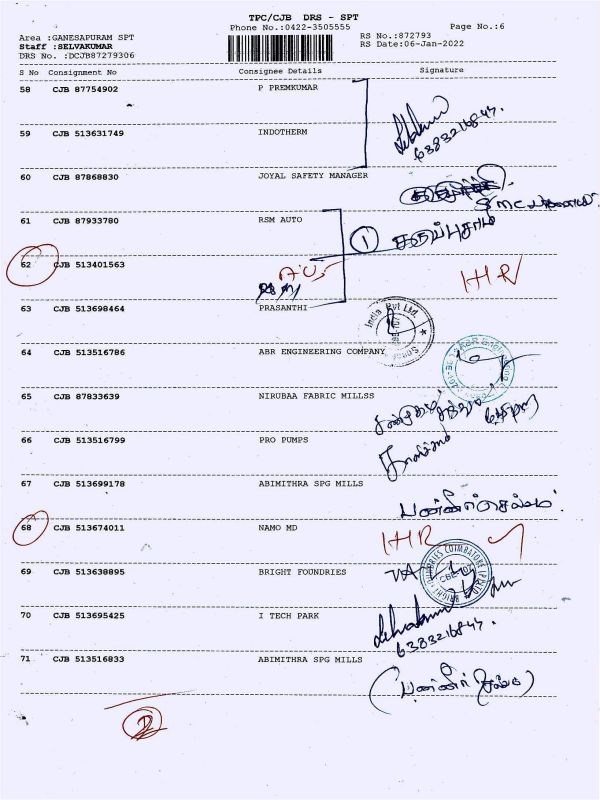 TPC/CJB DRS - SPT
Phone No.:0422-3505555
Page No.:6
Area :GANESAPURAM SPT
RS No.:872793
Staff :SELVAKUMAR
RS Date:06-Jan-2022
DRS No. :DCJB87279306
S No Consignment No Consignee Details Signature
58 CJB 87754902 P PREMKUMAR
6383216847.
59 CJB 513631749 INDOTHERM
60 CJB 87868830 JOYAL SAFETY MANAGER
61 CJB 87933780 RSM AUTO
1
62 CJB 513401563
IHR
63 CJB 513698464 PRASANTHI
India Pvt Ltd.
64 CJB 513516786 ABR ENGINEERING COMPANY
65 CJB 87833639 NIRUBAA FABRIC MILLSS
66 CJB 513516799 PRO PUMPS
67 CJB 513699178 ABIMITHRA SPG MILLS
பன்னீர்செல்வம்
68 CJB 513674011 NAMO MD
IHR
69 CJB 513638895 BRIGHT FOUNDRIES
70 CJB 513695425 I TECH PARK
Selvakumar
6383216847.
71 CJB 513516833 ABIMITHRA SPG MILLS
2